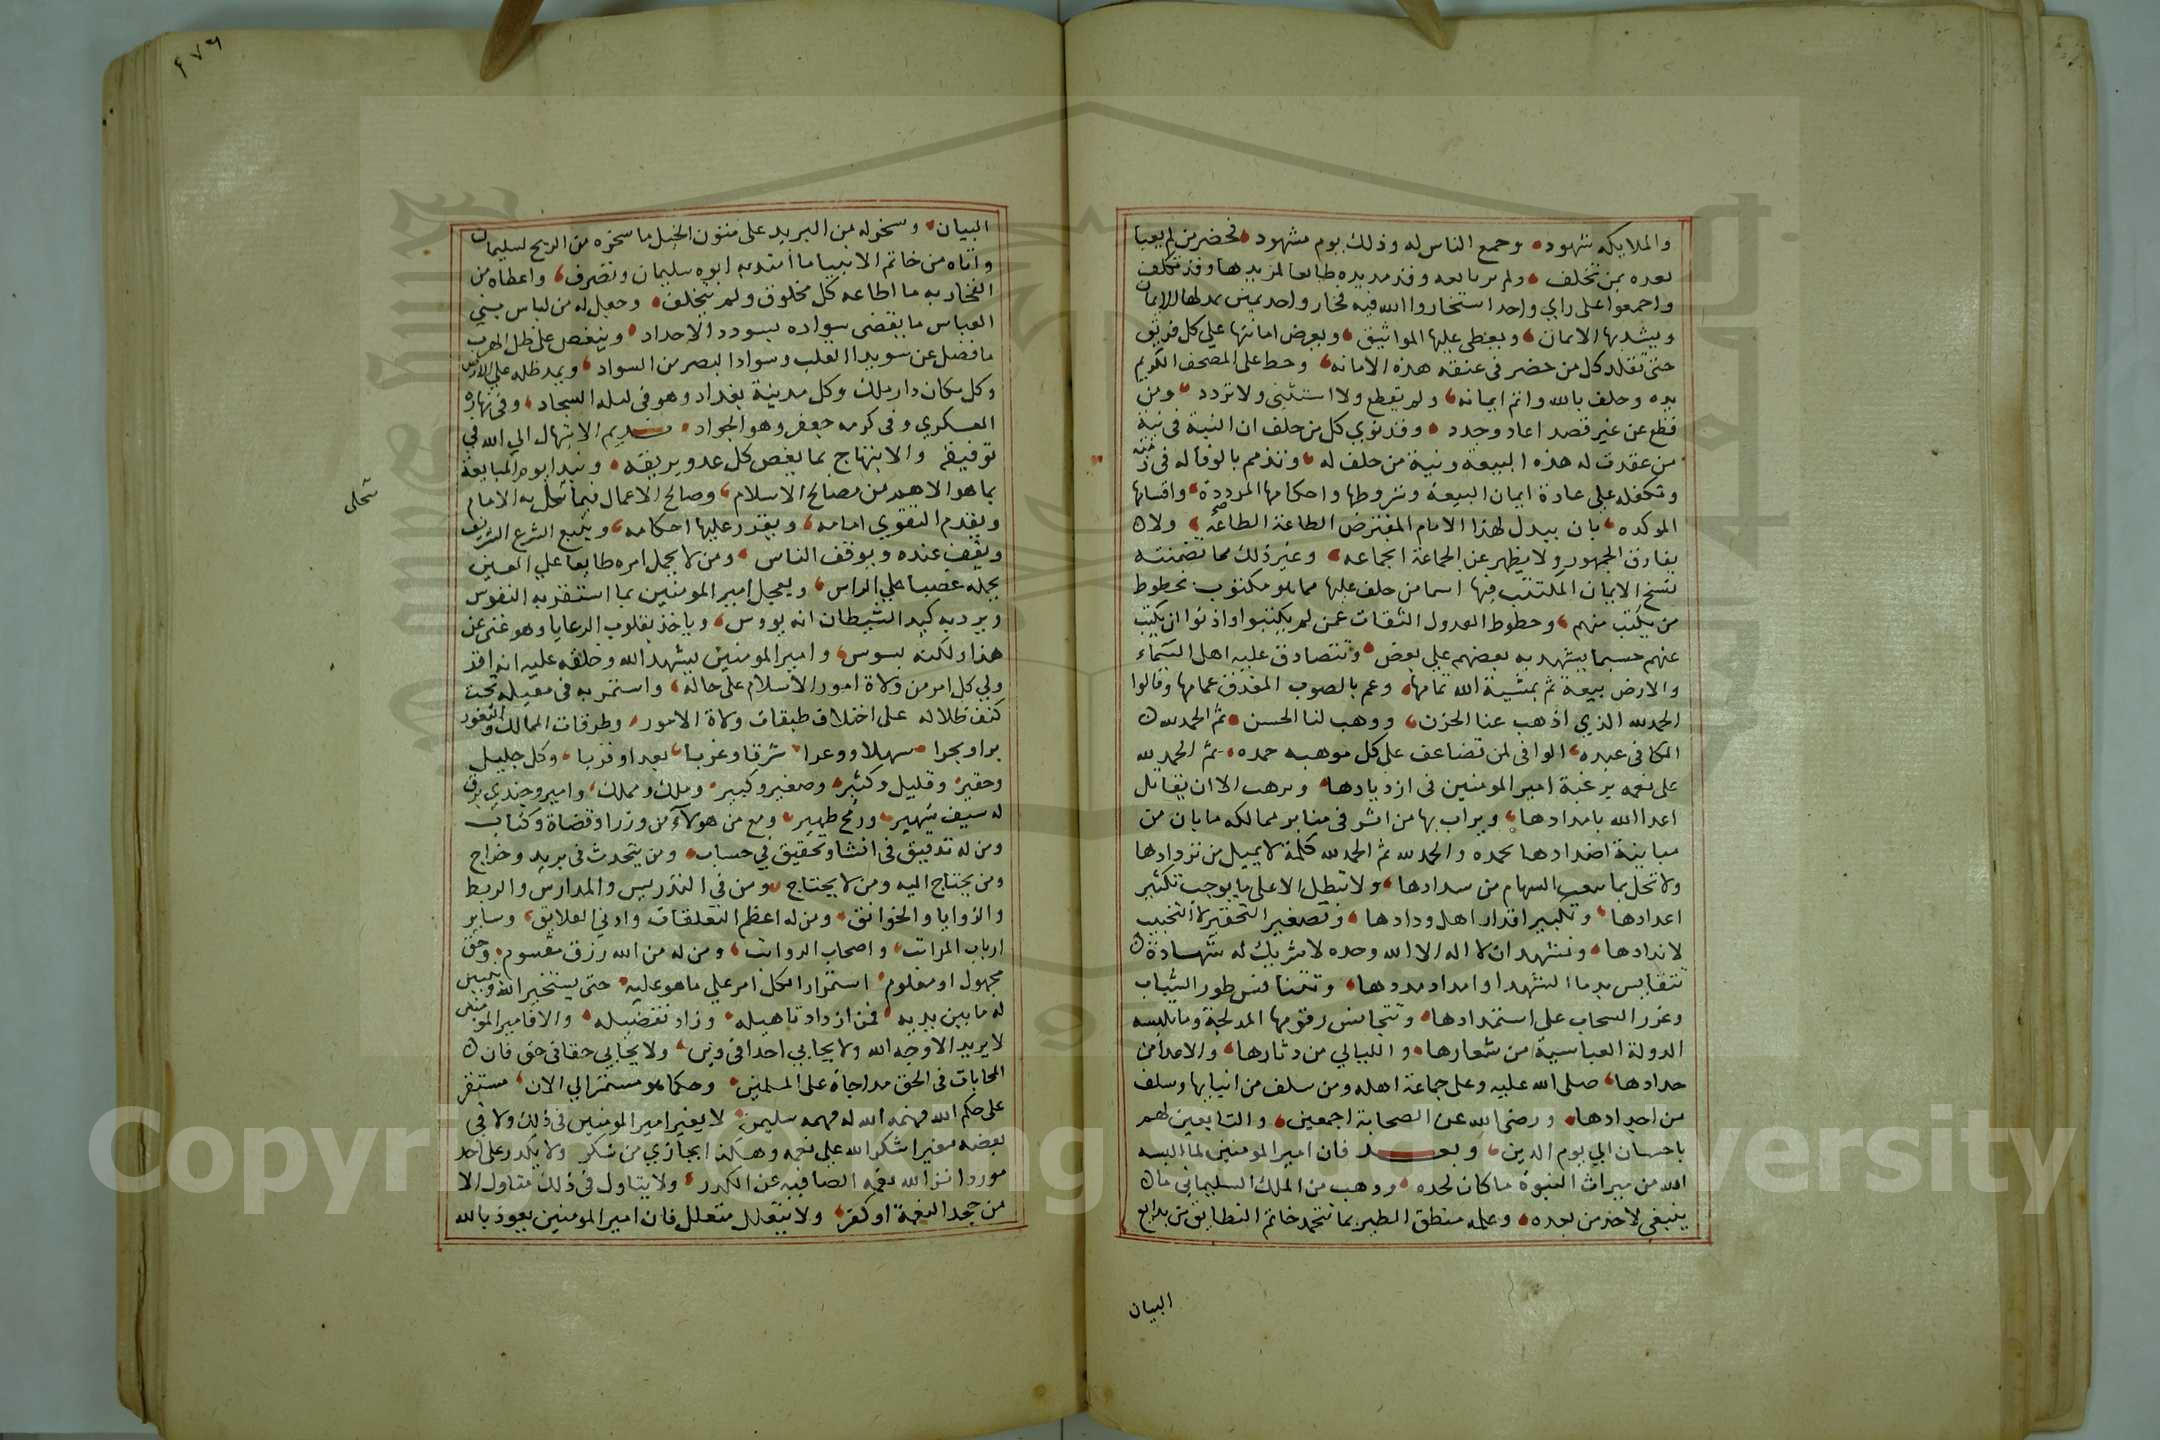 والملايكه شهود وجمع الناس له وذلك يوم مشهود فحضر من لم يعبا
بعده بمن تخلف ولم ير بابعه وقد مد يده طايعا لمزيدها وقد تكلف
واجمعوا على راي واحد استخاروا الله فيه فخار واحد يمين يمد لها الايمان
ويشد بها الايمان ويعطى عليها المواثيق ويعرض امانتها على كل فريق
حتى تقلد كل من حضر فى عنقه هذه الامانه وحط على المصحف الكريم
يده وحلف بالله واتم ايمانه ولم يقطع ولا استثنى ولا تردد ومن
قطع عن غير قصد اعاد وجدد وقد نوي كل من حلف ان النية فى نية
من عقدت له هذه البيعة ونية من حلف له وتذمم بالوفا له فى ذمته
وتكفله على عادة ايمان البيعة وشروطها واحكامها المرددة واقسامها
الموكده بان يبدل لهذا الامام المفترض الطاعة الطاعة ولا
يفارق الجمهور ولا يظهر عن الجماعة انجماعه وغير ذلك مما تضمنته
نسخ الايمان المكتتب فيها اسما من حلف عليها مما هو مكتوب بخطوط
من يكتب منهم وخطوط العدول الثقات عمن لم يكتبوا واذنوا ان يكتب
عنهم حسبما يشهد به بعضهم على بعض وتتصادق عليه اهل السماء
والارض بيعة ثم بمشية الله تمامها وعم بالصوب المغدق غمامها وقالوا
الحمد لله الذي اذهب عنا الحزن ووهب لنا الحسن ثم الحمد لله
الكافى عبده الوافى لمن تضاعف على كل موهبه حمده ثم الحمد لله
على نعمه يرغبة امير المومنين فى ازديادها ويرهب الا ان يقاتل
اعدا الله بامدادها ويراب بها من اثر فى منابر ممالكه ما بان من
مباينة اضدادها نحمده والحمد لله ثم الحمد لله كلمة لا يميل من تردادها
ولا تخل بما السهام من سدادها ولا تبطل الا على ما يوجب تكثير
اعدادها وتكبير اقدار اهل ودادها وتصغير التحقير لا التحبيب
لاندادها ونشهد ان لا اله الا الله وحده لا شريك له شهادة
تتقايس بدما الشهدا وامداد مددها وتتنافس طور الشباب
وغرر السحاب على استمدادها وتتجانس رقومها المدلجة وما تلبسه
الدولة العباسية من شعارها والليالي من دثارها والاعدا من
حدادها صلى الله عليه وعلى جماعة اهله ومن سلف من ابنايها وسلف
من اجدادها ورضى الله عن الصحابة اجمعين والتابعين لهم
باحسان الى يوم الدين وبعد فان امير المومنين لما البسه
الله من ميراث النبوة ما كان لجده ووهب من الملك السليمانى ما
ينبغي لاحد من بعده وعلمه منطق الطير بما تتحمد خاتم النطايق من بدايع
البيان
٤٧٦
البيان وسخر له من البريد على متون الخيل ما سخره من الريح لسليمان
واتاه من خاتم الانبيا ما امتد به ابوه سليمان وتصرف واعطاه من
الفخار به ما اطاعه كل مخلوق ولم يتخلف وجعل له من لباس بني
العباس ما يقضى سواده بسودد الاجداد وينفض على ظل الهدب
ما فضل عن سويدا القلب وسواد البصر من السواد ويمد ظله على الارض
وكل مكان دار ملك وكل مدينة بغداد وهو فى ليله السجاد وفى نهاره
العسكري وفى كرمه جعفر وهو الجواد يديم الابتهال الى الله فى
توفيقه والابتهاج بما يغص كل عدو بريقه ويبدا يوم المبايعة
بما هو الاهم من مصالح الاسلام وصالح الاعمال فيما تحلى به الامام
ويقدم التقوي امامه ويقدر عليها احكامه ويتبع الشرع الشريف
ويقف عنده ويوقف الناس ومن لا يحمل امره طايعا على العين
يحمله غصبا على الراس ويعجل امير المومنين بما استقر به النفوس
ويرد به كيد الشيطان انه يووس وياخذ بقلوب الرعايا وهو غنى عن
هذا ولكنه يسوس وامير المومنين يشهد الله وخلقه عليه انه اقر
ولي كل امر من ولاة امور الاسلام على حاله واستمر به فى مقيله تحت
كنف ظلاله على اختلاف طبقات ولاة الامور وطرقات الممالك والثغور
برا وبحرا سهلا ووعرا شرقا وغربا بعدا وقربا وكل جليل
وحقير وقليل وكثير وصغير وكبير وملك ومملك وامير وجندي يرق
له سيف شهير ورمح طهير ومع من هولاء من وزرا وقضاة وكتاب
ومن له تدقيق فى انشا وتحقيق فى حساب ومن يتحدث فى بريد وخراج
ومن يحتاج اليه ومن لا يحتاج ومن فى التدريس والمدارس والربط
والزوايا والخوانق ومن له اعظم التعلقات وادنى العلايق وساير
ارباب المراتب واصحاب الرواتب ومن له من الله رزق مقسوم وحق
مجهول او معلوم استمرار الكل امر على ما هو عليه حتى يستخير الله ويتبين
له ما بين يديه فمن ازداد تاهيله وزاد تفضيله والا فامير المومنين
لا يريد الا وجه الله ولا يحابي احدا فى دين ولا يحابي حقا فى حق فان
المحابات فى الحق مداجاة على المسلمين وحكما هو مستمر الى الان مستقر
على حكم الله فهمه الله له فهمه سليمن لا يغير امير المومنين فى ذلك ولا فى
بعضه مغيرا شكر الله على نعمه وهكذا يجازي من شكر ولا يكدر على احد
موردا نزه الله نعمه الصافيه عن الكدر ولا يتاول فى ذلك متاول الا
من جحد النعمة او كفر ولا يتعلل متعلل فان امير المومنين يعوذ بالله
تحلى